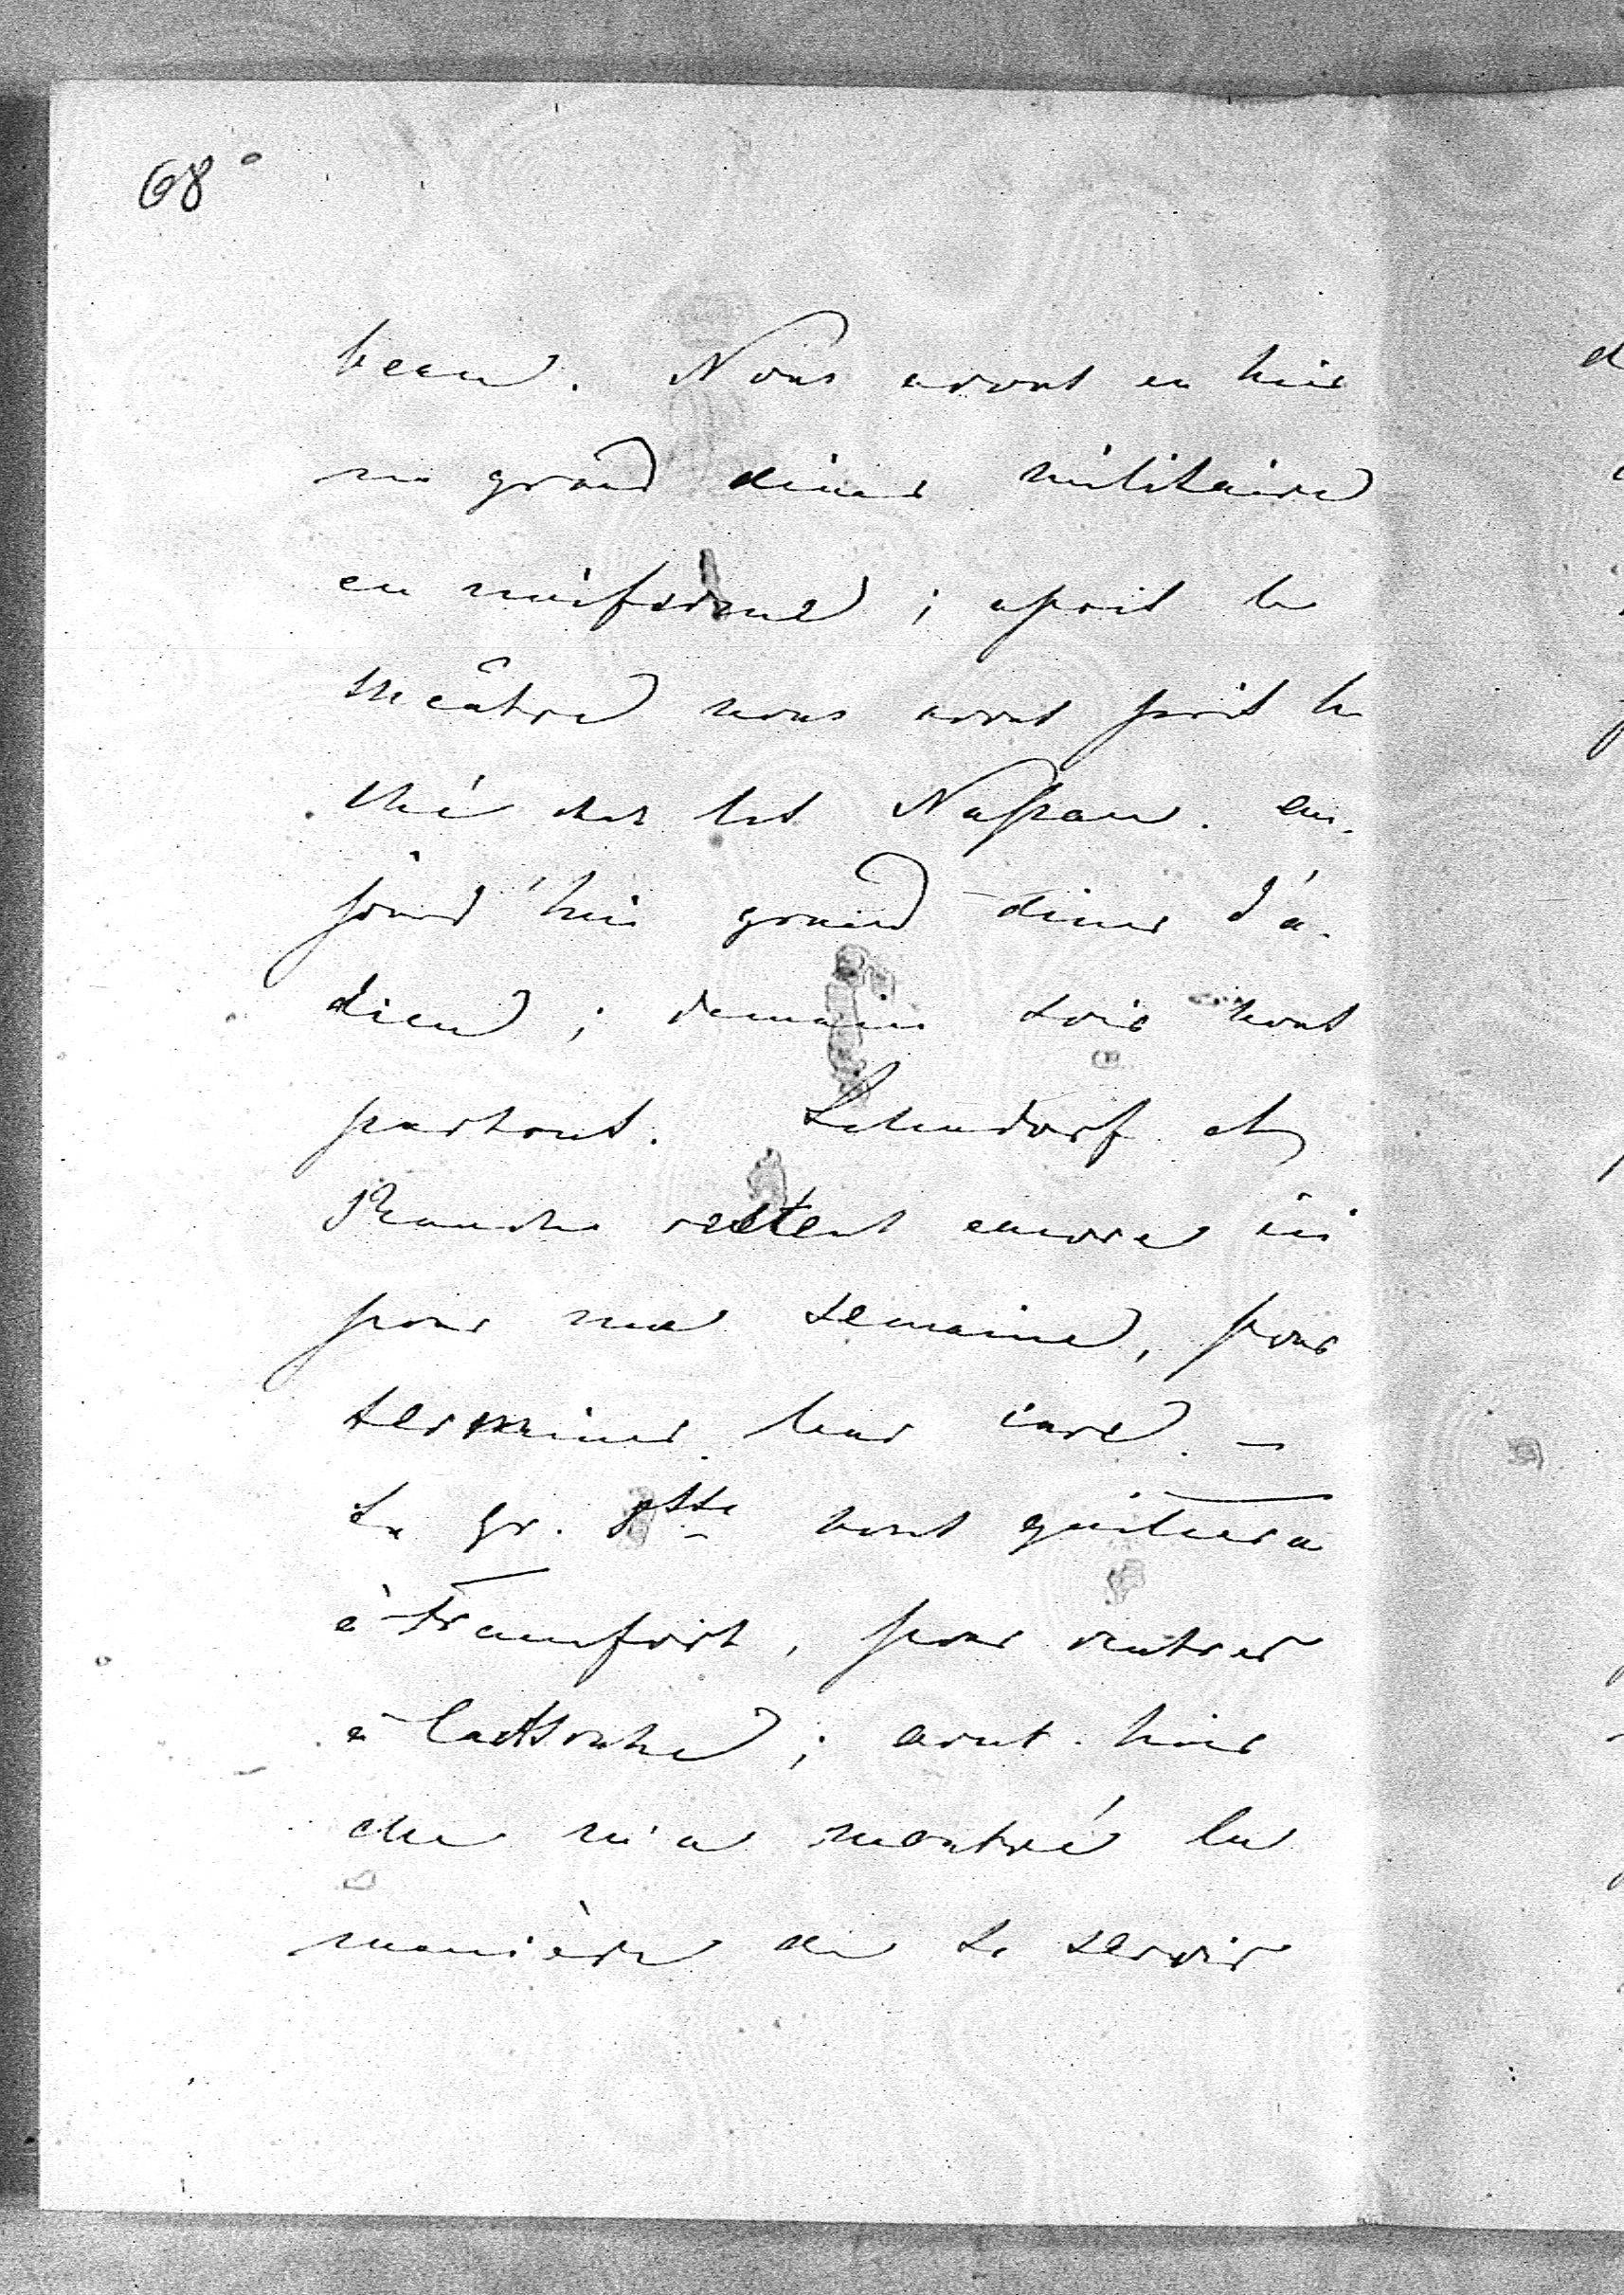 68°
beau. Nous avons eu hier
un grand diner militaire
en uniforme ; après le
théâtre nous avons pris le
thé chez les Nassau. au-
jourd'hui grand diner d'a-
dieu ; demain soir nous
partons. Lehndorf et
restent encore ici
pour une semaine, pour
terminer leur cure. —
La gr. Dsse nous quittera
à Francfort, pour rentrer
à Carlsruhe ; avant-hier
elle m'a montré la
manière de se servir